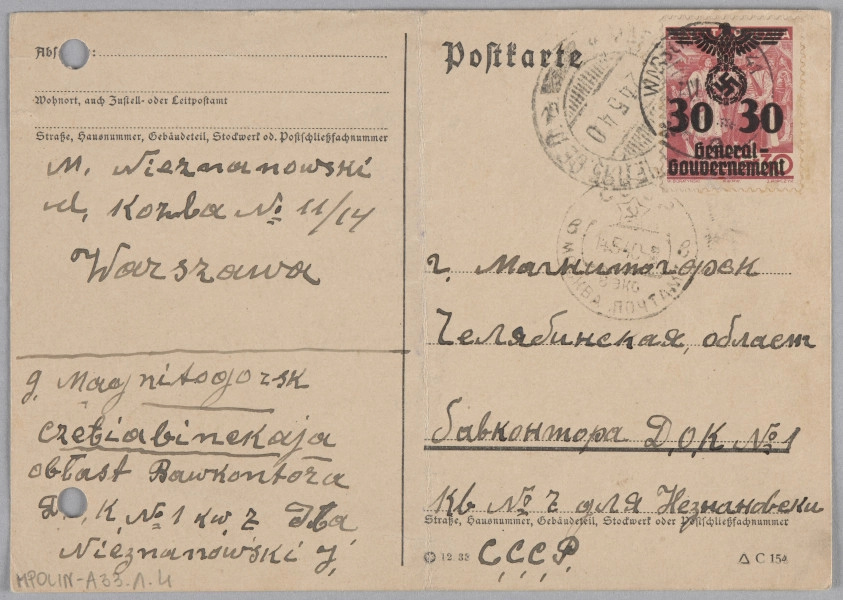 Postkarte
Wohnort, auch Zustell- oder Leitpostamt
Straße, Hausnummer, Gebäudeteil, Stockwerk od. Postschließfachnummer
M. Nieznanowski
ul. Kozla № 11/14
Warszawa
g. Magnitogorsk
czeliabinskaja
obłast Bawkontora
K № 1 kw 7
Nieznanowski J.
MPOLIN-A33.1.4
30 30
General-
Gouvernement
30
24.5.40
МОСКВА ПОЧТАМТ
г. Магнитогорск
Челябинская, област
бавконтора Д.О.К №1
Кв № 7 для Незнановски
Straße, Hausnummer, Gebäudeteil, Stockwerk oder Postschließfachnummer
С.С.С.Р.
C 154